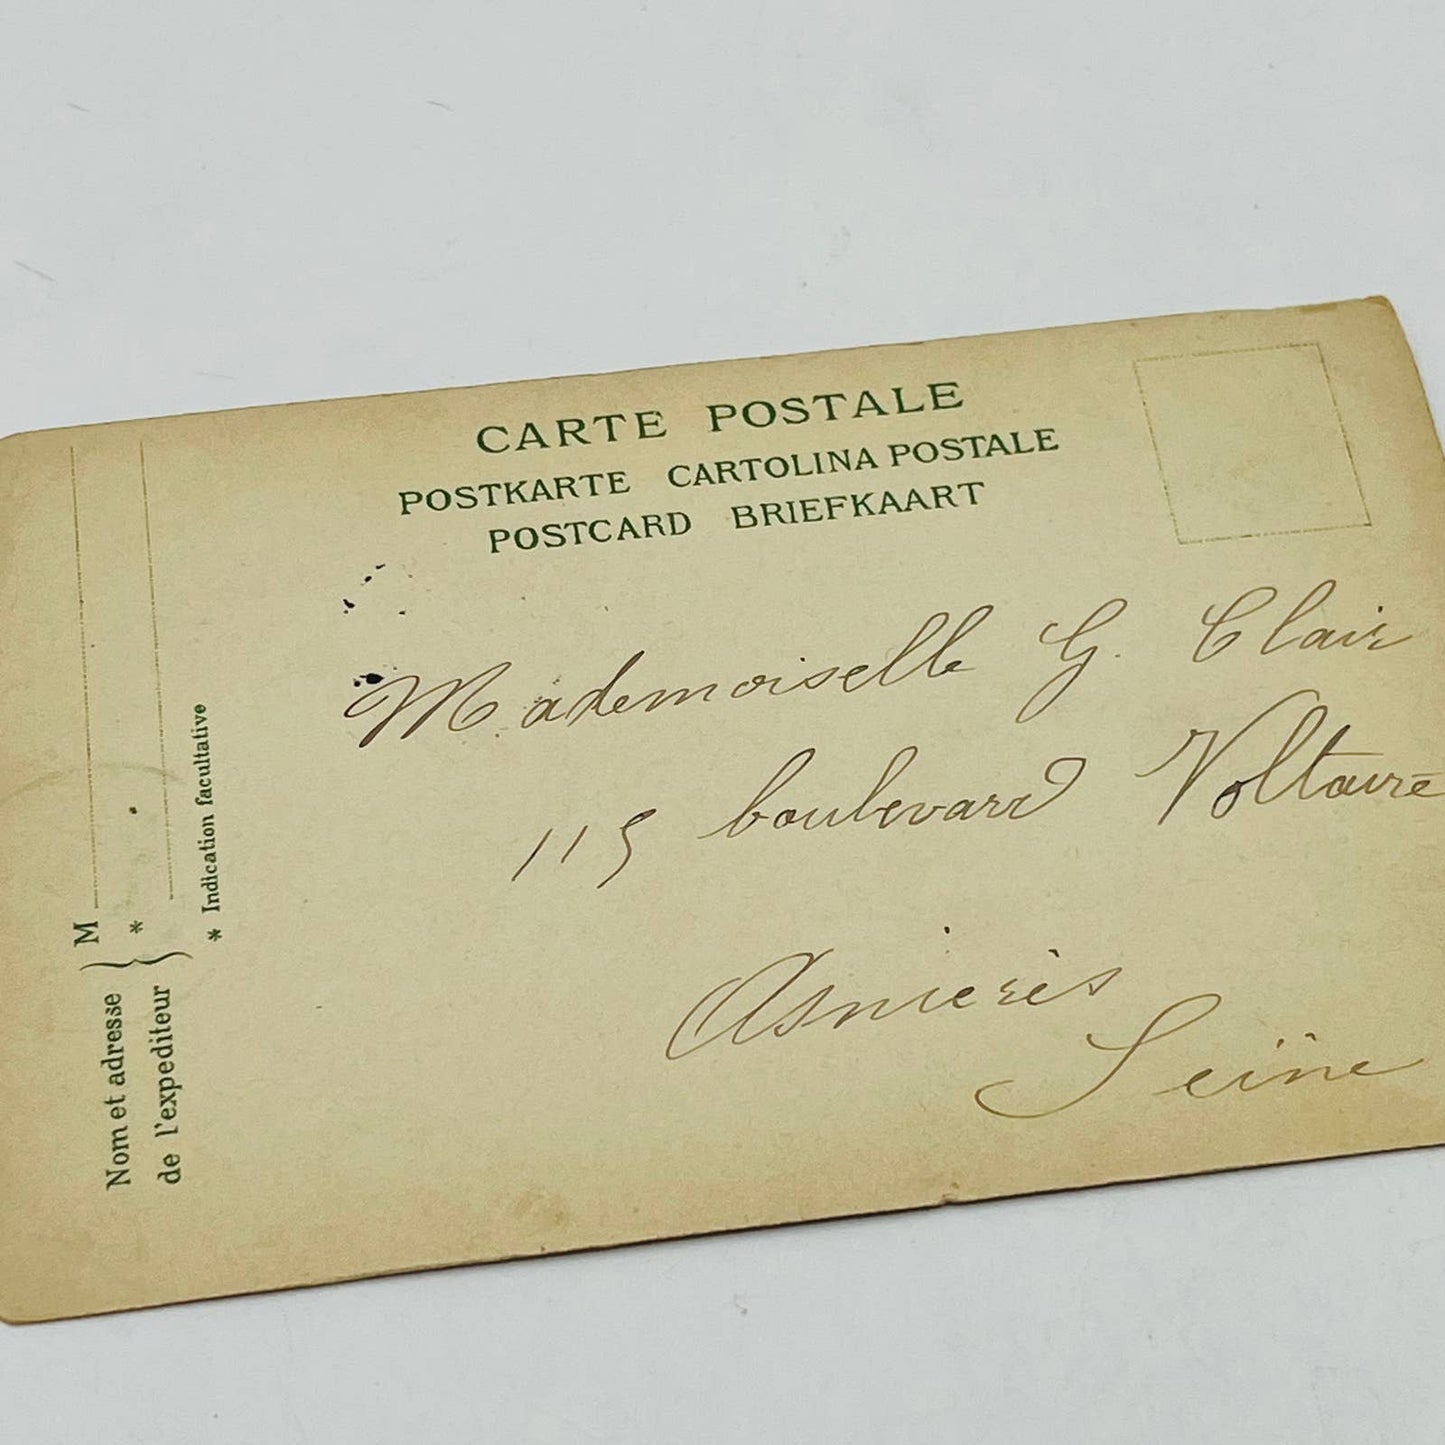 CARTE POSTALE
POSTKARTE CARTOLINA POSTALE
POSTCARD BRIEFKAART
Mademoiselle G. Clair
115 boulevard Voltaire
Asnierès
Seine
Nom et adresse
de l'expediteur
M
*
* Indication facultative